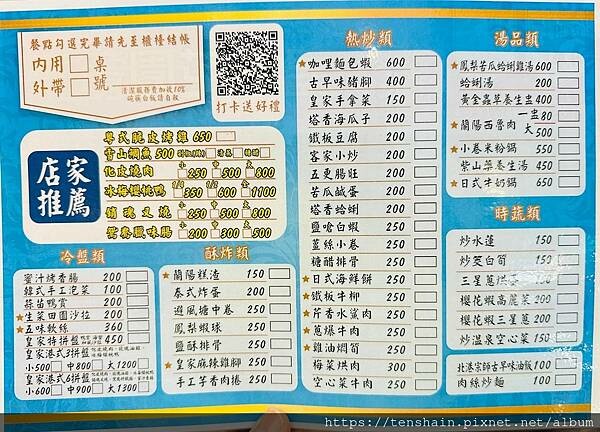 餐點勾選完畢請先至櫃檯結帳
內用 桌
外帶 號
清潔服務費加收10%
碗筷白飯請自取
打卡送好禮
店家
推薦
粵式脆皮烤雞 650
雪山鯛魚 500
化皮燒肉 小250 中500 大800
冰梅櫻桃鴨 350 600 1100
銷魂叉燒 小250 中500 大800
鴛鴦臘味腸 小200 中300 大500
冷盤類
蜜汁烤香腸 200
韓式手工泡菜 100
蒜苗鴨賞 200
★生菜田園沙拉 200
★五味軟絲 360
皇家特拼盤 450
皇家港式3拼盤
小500 中800 大1200
皇家港式6拼盤
小600 中900 大1300
酥炸類
★蘭陽糕渣 150
泰式炸蛋 200
避風塘中卷 250
鳳梨蝦球 250
鹽酥排骨 250
★皇家麻辣雞腳 250
手工芋香肉捲 250
熱炒類
★咖哩麵包蝦 600
古早味豬腳 400
皇家手拿菜 150
塔香海瓜子 200
鐵板豆腐 200
客家小炒 200
五更腸旺 200
苦瓜鹹蛋 200
塔香蛤蜊 200
鹽嗆白蝦 250
薑絲小卷 250
糖醋排骨 250
★日式海鮮餅 250
★鐵板牛柳 250
★芹香水鯊肉 250
★蔥爆牛肉 250
★雞油燜筍 250
梅菜烘肉 300
空心菜牛肉 200
湯品類
★鳳梨苦瓜蛤蜊雞湯 600
蛤蜊湯 200
黃金蟲草養生盅 400
★蘭陽西魯肉 一盅80
大500
★小卷米粉鍋 550
紫山藥養生湯 450
★日式牛奶鍋 650
時蔬類
炒水蓮 150
炒茭白筍 150
三星蔥烘蛋 150
櫻花蝦高麗菜 200
櫻花蝦三星蔥 200
炒溫泉空心菜 150
北港宗師古早味油飯 100
肉絲炒麵 100
https://tenshain.pixnet.net/album